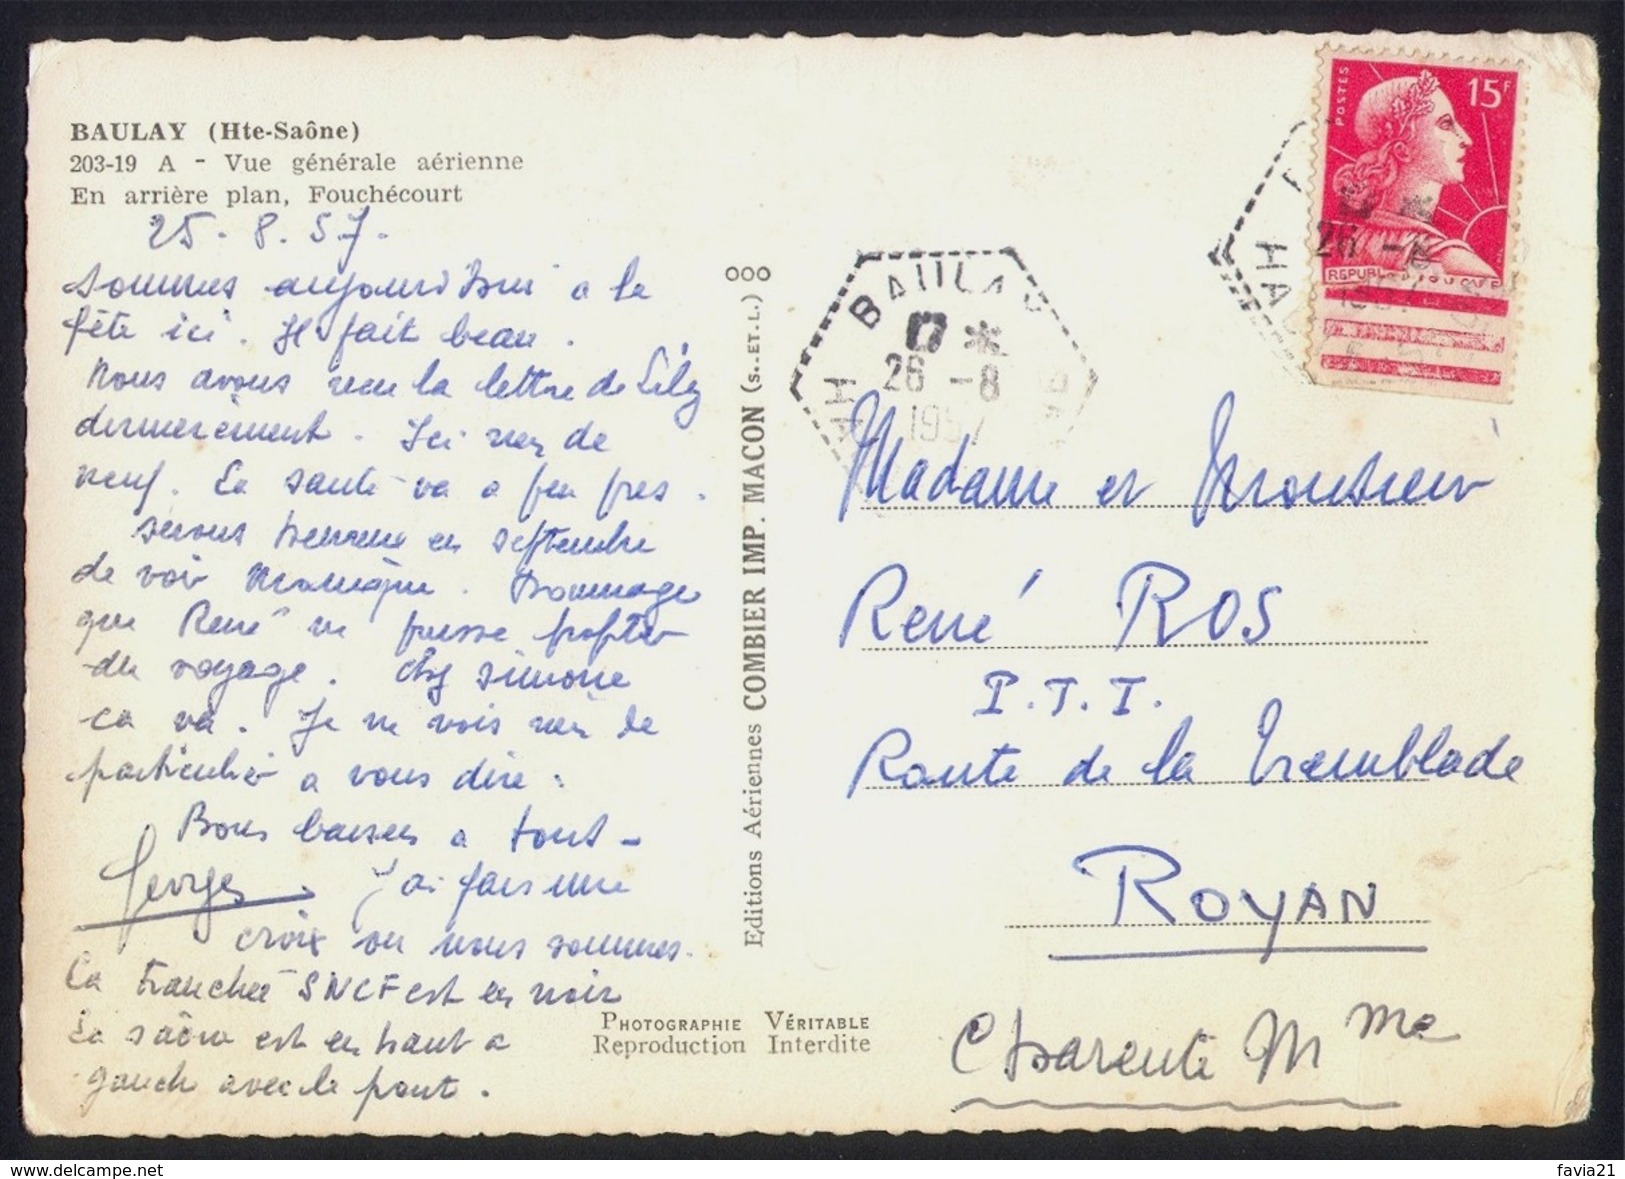 BAULAY (Hte-Saône)
203-19 A - Vue générale aérienne
En arrière plan, Fouchécourt
25.8.57.
sommes aujourd'hui a la
fête ici. Il fait beau.
Nous avons reçu la lettre de Lily
dernièrement. Ici rien de
neuf. La santé va a peu pres.
serons heureux en septembre
de voir Monique. Dommage
que René ne puisse profiter
du voyage. Chez Simone
ca va. Je ne vois rien de
particulier a vous dire.
Bons baisers a tous -
Georges J'ai fais une
croix ou nous sommes.
La tranchée SNCF est en noir
La saône est en haut a
gauch avec le pont.
ooo
Editions Aériennes COMBIER IMP. MACON (S.-ET-L.)
PHOTOGRAPHIE VÉRITABLE
Reproduction Interdite
BAULAY
26 -8
1957
POSTES
15F
26 -8
1957
Madame et Monsieur
René ROS
P.T.T.
Route de la Tremblade
ROYAN
Charente Mme
www.delcampe.net
favia21